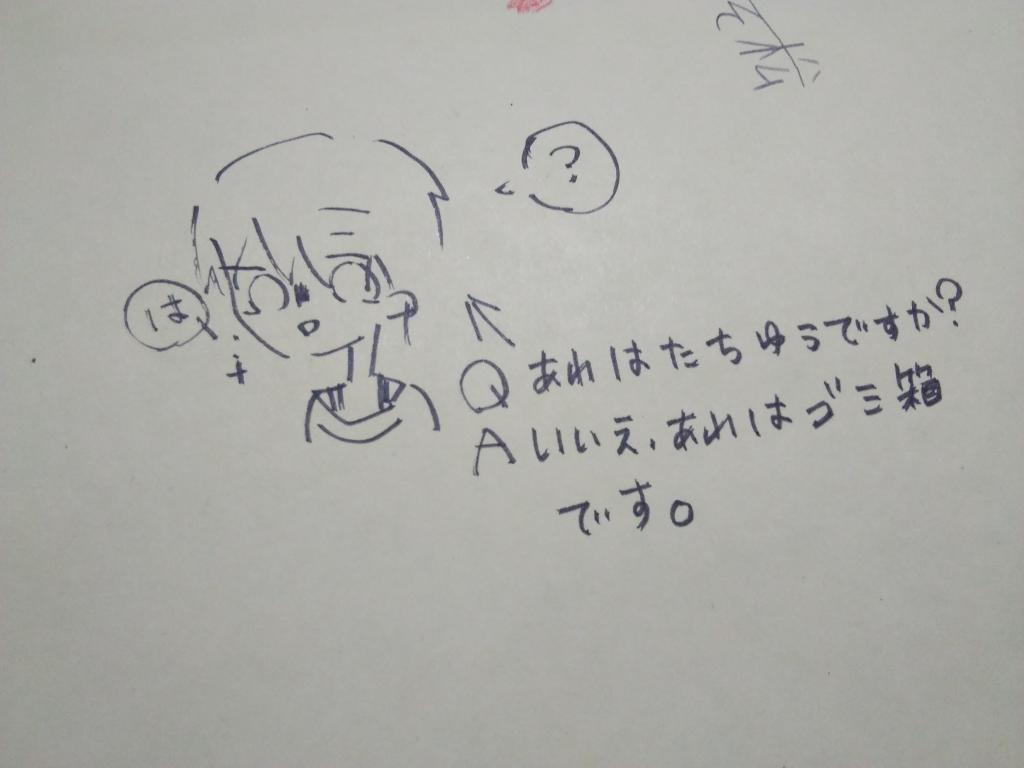 ?
は
Q あれはたちゅうですか?
A いいえ、あれはゴミ箱
です。